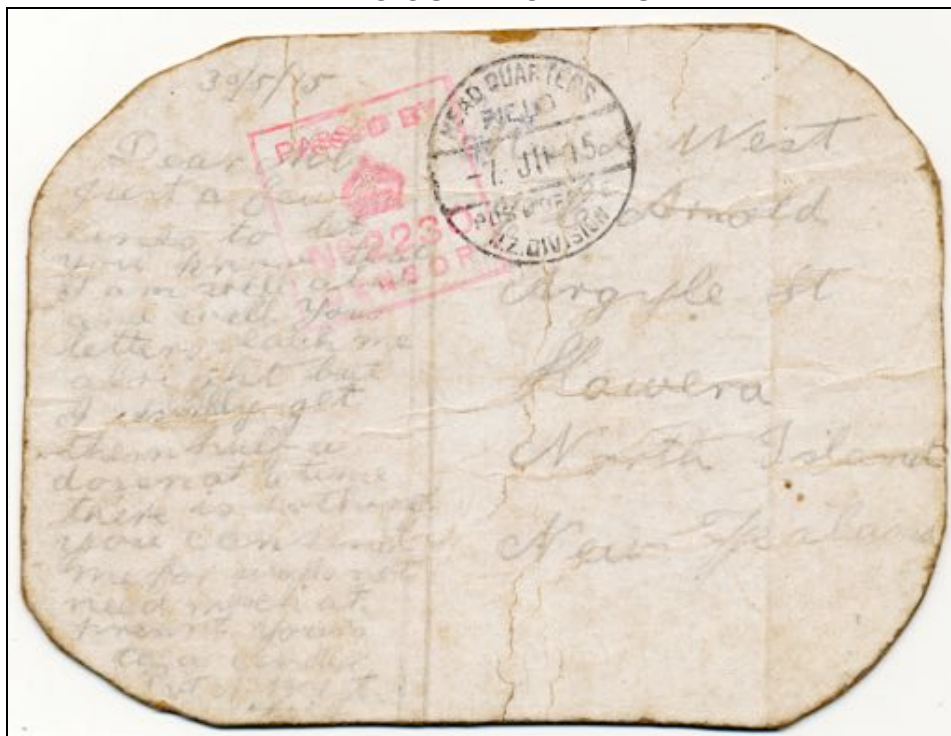 30/5/15
Dear
just a few
lines to let
you know that
I am still alive
and well Your
letters reach me
alright but
I usually get
them half a
dozen at a time
there is nothing
you can send
me for we do not
need much at
present Yours
PASSED BY
No 2230
CENSOR
HEAD QUARTERS
FIELD
-7. JU 15
POST OFFICE
N.Z. DIVISION
West
Arnold
Argyle St
Hawera
North Island
New Zealand